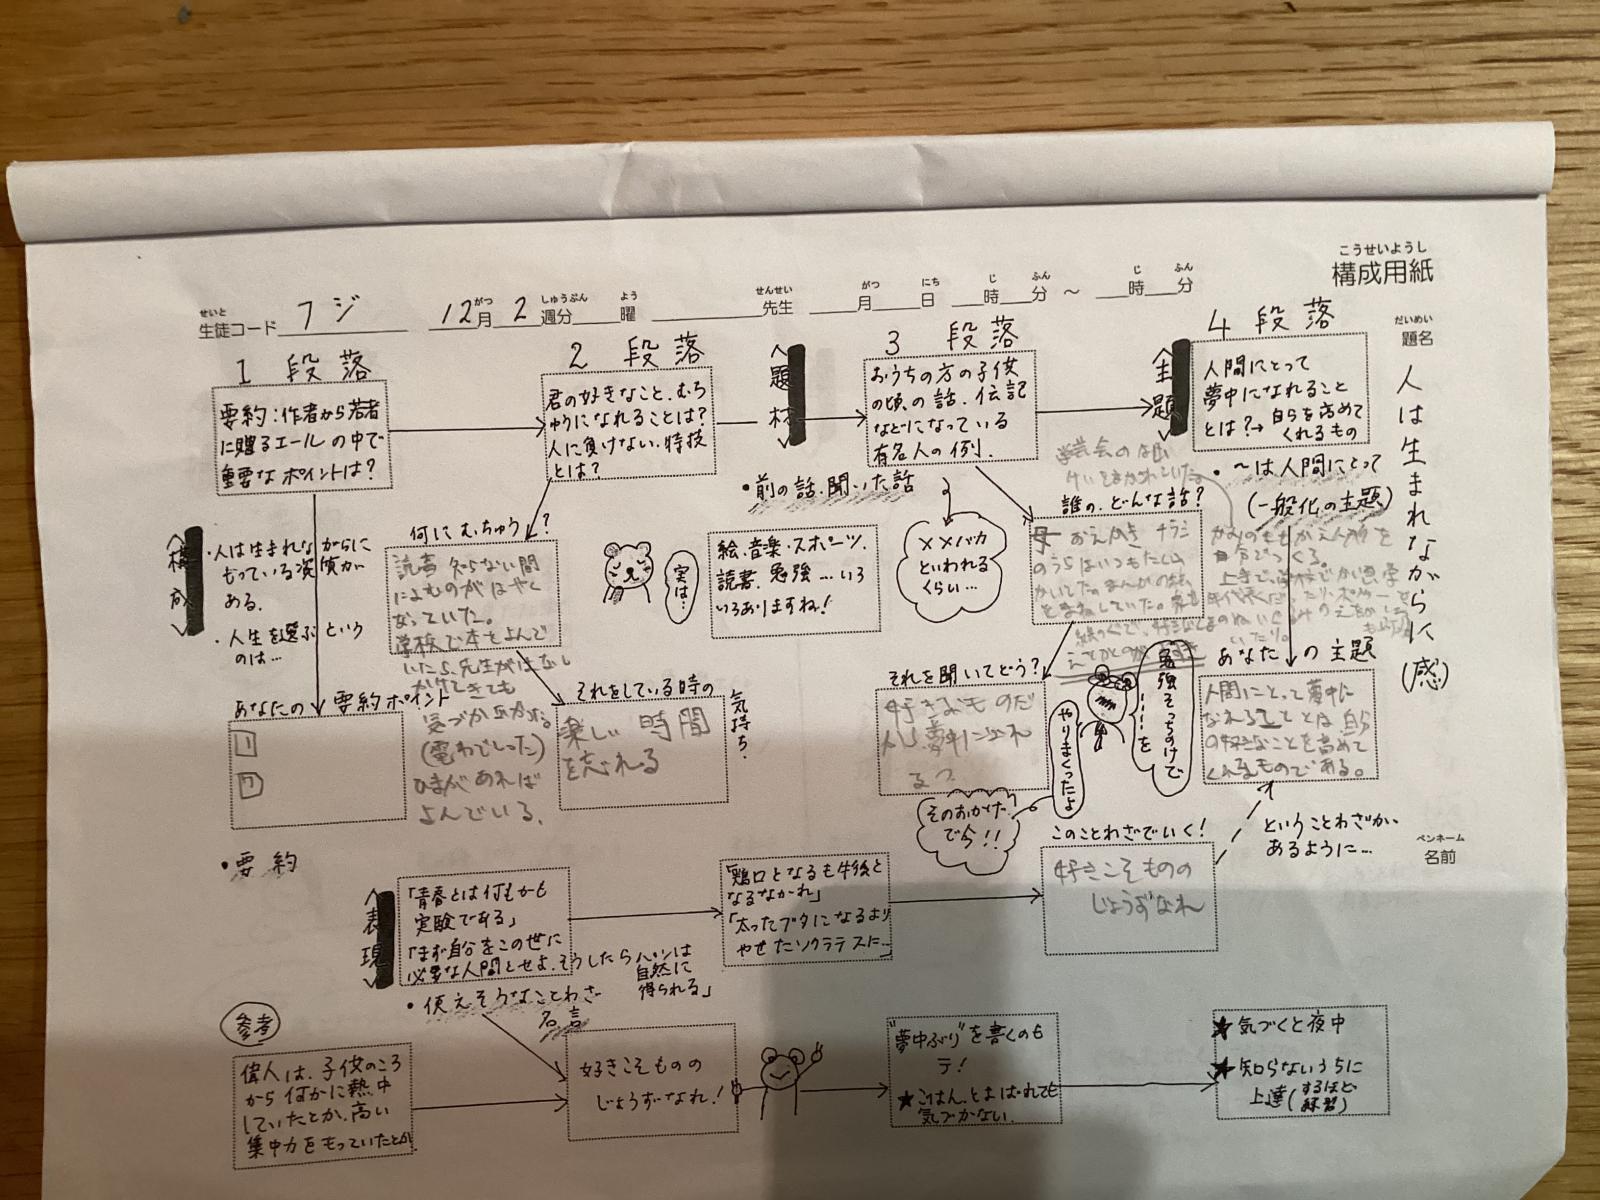 こうせいようし
構成用紙
せいと
生徒コード フジ
がつ しゅうぶん よう
12月 2 週分 曜
せんせい
先生
がつ にち じ ふん じ ふん
月 日 時 分 ～ 時 分
だいめい
題名
人は生まれながらに(感)
ペンネーム
名前
1 段落
要約:作者から若者
に贈るエールの中で
重要なポイントは?
2 段落
君の好きなこと、むち
ゅうになれることは?
人に負けない特技
とは?
<題材>
3 段落
おうちの方の子供
の頃の話、伝記
などになっている
有名人の例.
<主題>
4 段落
人間にとって
夢中になれること
とは?→自らを高めて
くれるもの
<構成>
・人は生まれながらに
もっている資質が
ある.
・人生を選ぶという
のは…
あなたの要約ポイント
・要約
何にむちゅう?
読書 知らない間
によむのがはやく
なっていた。
学校で本をよんで
いたら、先生がはなし
かけてきても
気づかなかった。
(電わでしった)
ひまがあれば
よんでいる。
それをしている時の
気持ち.
楽しい 時間
を忘れる
実は…
・前の話、聞いた話
絵・音楽・スポーツ、
読書、勉強…いろ
いろありますね!
××バカ
といわれる
くらい…
誰の、どんな話?
母 おえかき チラシ
のうらはいつもたくさん
かいてた。まんがの絵
をまねしていた。
それを聞いてどう?
好きなものだ
から夢中になれ
る
勉強そっちのけで
……を
やりまくったよ
そのおかげ
で今!!
・～は人間にとって
(一般化の主題)
あなたの主題
人間にとって夢中に
なれることとは 自ら
の好きなことを高めて
くれるものである。
ということわざが、
あるように…
このことわざでいく!
好きこそものの
じょうずなれ
<表現>
「青春とは何もかも
実験である」
「まず自分をこの世に
必要な人間とせよ、そうしたらパンは
自然に
得られる」
・使えそうなことわざ
名言
「鶏口となるも牛後と
なるなかれ」
「太ったブタになるより
やせたソクラテスに…」
参考
偉人は、子供のころ
から何かに熱中
していたとか、高い
集中力をもっていたとか
好きこそものの
じょうずなれ!
"夢中ぶり"を書くのも
テ!
★ごはん、とよばれても
気づかない.
★気づくと夜中
★知らないうちに
上達(するほど
練習)